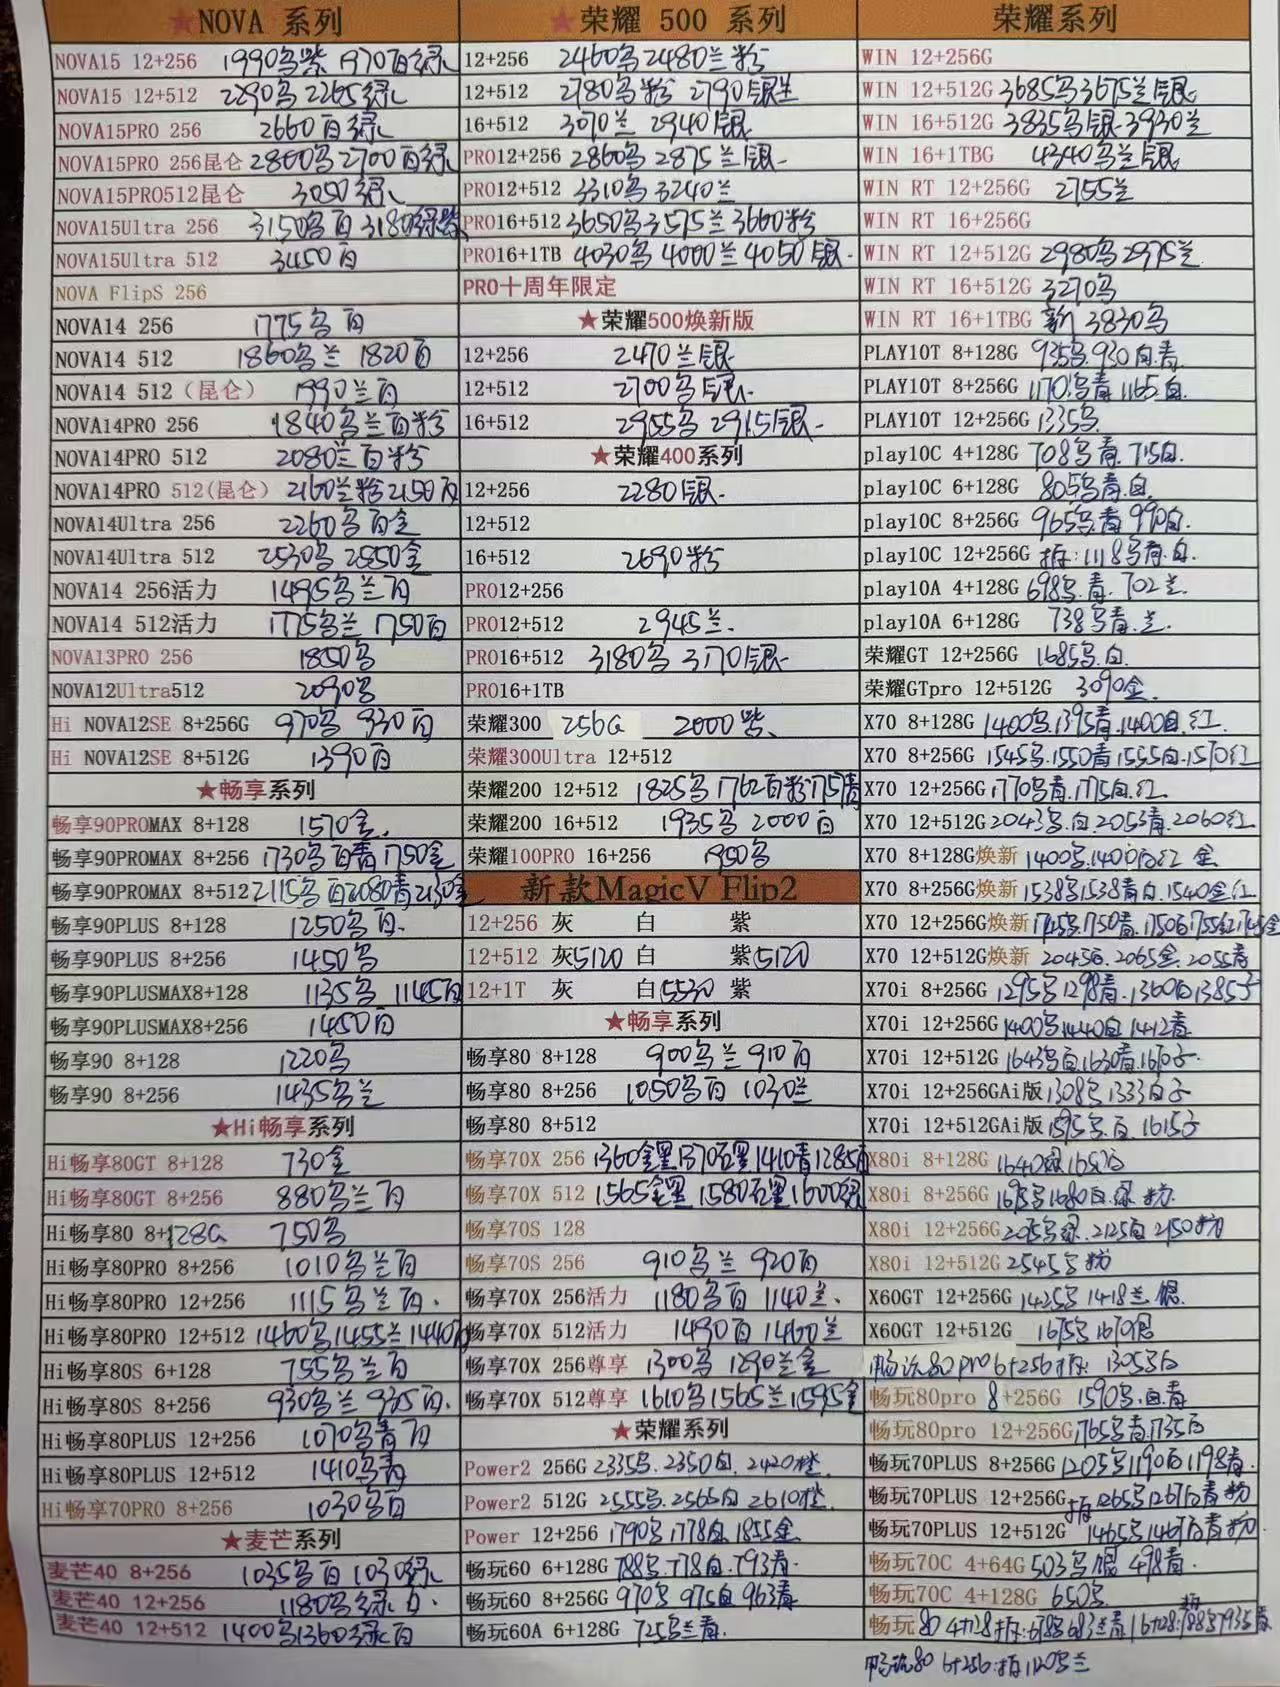 ★NOVA 系列
NOVA15 12+256 1990乌紫 1970百绿
NOVA15 12+512 2290乌 2265绿
NOVA15PRO 256 2660百绿
NOVA15PRO 256昆仑 2800乌 2700百绿
NOVA15PRO512昆仑 3050绿
NOVA15Ultra 256 3150乌百 3180绿紫
NOVA15Ultra 512 3450百
NOVA FlipS 256
NOVA14 256 1775乌百
NOVA14 512 1860乌兰 1820百
NOVA14 512（昆仑） 1990兰百
NOVA14PRO 256 1840乌兰百粉
NOVA14PRO 512 2080兰百粉
NOVA14PRO 512(昆仑) 2160兰粉 2150百
NOVA14Ultra 256 2260乌百金
NOVA14Ultra 512 2530乌 2550金
NOVA14 256活力 1495乌兰百
NOVA14 512活力 1775乌兰 1750百
NOVA13PRO 256 1850乌
NOVA12Ultra512 2090乌
Hi NOVA12SE 8+256G 970乌 930百
Hi NOVA12SE 8+512G 1390百
★畅享系列
畅享90PROMAX 8+128 1570金.
畅享90PROMAX 8+256 1730乌百青 1750金
畅享90PROMAX 8+512 2115乌百2080青2130金
畅享90PLUS 8+128 1250乌百.
畅享90PLUS 8+256 1450乌
畅享90PLUSMAX8+128 1135乌 1145百
畅享90PLUSMAX8+256 1450百
畅享90 8+128 1220乌
畅享90 8+256 1435乌兰
★Hi畅享系列
Hi畅享80GT 8+128 730金
Hi畅享80GT 8+256 880乌兰百
Hi畅享80 8+128G 750乌
Hi畅享80PRO 8+256 1010乌兰百
Hi畅享80PRO 12+256 1115乌兰百.
Hi畅享80PRO 12+512 1460乌1455兰1440百
Hi畅享80S 6+128 755乌兰百
Hi畅享80S 8+256 930乌兰 935百.
Hi畅享80PLUS 12+256 1070乌青百
Hi畅享80PLUS 12+512 1410乌青
Hi畅享70PRO 8+256 1030乌百
★麦芒系列
麦芒40 8+256 1035乌百 1030绿
麦芒40 12+256 1180乌绿百.
麦芒40 12+512 1400乌1360绿百
★荣耀 500 系列
12+256 2460乌2480兰粉
12+512 2780乌粉 2790银兰
16+512 3070兰 2940银
PRO12+256 2860乌 2875兰银
PRO12+512 3310乌3240兰
PRO16+512 3650乌3575兰3660粉
PRO16+1TB 4030乌 4000兰 4050银.
PRO十周年限定
★荣耀500焕新版
12+256 2470兰银
12+512 2700乌银.
16+512 2955乌 2915银
★荣耀400系列
12+256 2280银.
12+512
16+512 2690粉
PRO12+256
PRO12+512 2945兰.
PRO16+512 3180乌 3170银
PRO16+1TB
荣耀300 256G 2000紫
荣耀300Ultra 12+512
荣耀200 12+512 1825乌1762百粉1757青
荣耀200 16+512 1935乌 2000百
荣耀100PRO 16+256 1950乌
新款MagicV Flip2
12+256 灰 白 紫
12+512 灰5120 白 紫5120
12+1T 灰 白5530 紫
★畅享系列
畅享80 8+128 900乌兰 910百
畅享80 8+256 1050乌百 1030兰
畅享80 8+512
畅享70X 256 1360金黑1370石墨1410青1285百
畅享70X 512 1565金黑 1580石墨1600绿
畅享70S 128
畅享70S 256 910乌兰 920百
畅享70X 256活力 1180乌百 1140兰.
畅享70X 512活力 1490百 1460兰
畅享70X 256尊享 1300乌 1290兰金
畅享70X 512尊享 1610乌1565兰1595金
★荣耀系列
Power2 256G 2335乌.2350白.2420橙.
Power2 512G 2555乌.2565白2610橙.
Power 12+256 1790乌1778白1855金
畅玩60 6+128G 788乌.778白.793青.
畅玩60 8+256G 970乌 975白 963青
畅玩60A 6+128G 725乌兰青.
荣耀系列
WIN 12+256G
WIN 12+512G 3685乌3675兰银
WIN 16+512G 3835乌银.3930兰
WIN 16+1TBG 4340乌兰银
WIN RT 12+256G 2755兰
WIN RT 16+256G
WIN RT 12+512G 2980乌2975兰
WIN RT 16+512G 3270乌
WIN RT 16+1TBG 新 3830乌
PLAY10T 8+128G 935乌.930白.青.
PLAY10T 8+256G 1170.乌青1165.白.
PLAY10T 12+256G 1335乌.
play10C 4+128G 708乌青.715白.
play10C 6+128G 805乌青.白.
play10C 8+256G 965乌.青 990白.
play10C 12+256G 拆:1118乌青.白.
play10A 4+128G 698乌.青. 702兰.
play10A 6+128G 738乌青.兰.
荣耀GT 12+256G 1685乌.白.
荣耀GTpro 12+512G 3090金.
X70 8+128G 1400乌.1395青.1400白.红.
X70 8+256G 1545乌.1550青1555白.1570红
X70 12+256G 1770乌青.1775白.红.
X70 12+512G 2043乌.白.2053青.2060红
X70 8+128G焕新 1400乌.1400白红 金
X70 8+256G焕新 1538乌1538青白.1540金红
X70 12+256G焕新 1745乌1750青.1750白1755红1765金
X70 12+512G焕新 2045白.2065金.2055青
X70i 8+256G 1295乌1298青.1360白1385子
X70i 12+256G 1400乌1440白1412青
X70i 12+512G 1643乌白.1630青.1670子.
X70i 12+256GAi版 1308乌1333白子
X70i 12+512GAi版 1595乌.百. 1615子
X80i 8+128G 1640绿
X80i 8+256G 1695乌1680白.绿 粉.
X80i 12+256G 2125白 2150粉
X80i 12+512G 2545乌 粉
X60GT 12+256G 1425乌 1418兰 银.
X60GT 12+512G 1675乌1670银
畅玩80pro 6+256拆: 1305乌白
畅玩80pro 8+256G 1590乌.白.青
畅玩80pro 12+256G 1765乌青.1735白
畅玩70PLUS 8+256G 1205乌1190白1198青.
畅玩70PLUS 12+256G 拆1265乌1267白青粉
畅玩70PLUS 12+512G 1465乌1467白青粉.
畅玩70C 4+64G 503乌银 498青.
畅玩70C 4+128G 650乌
畅玩 80 4+128拆:678乌683兰青 6+128:拆788乌793兰青
畅玩80 6+256:拆1120乌兰